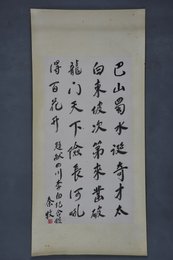 巴山蜀水诞奇才太
白东坡次第来凿破
龙门天下险长河乱
得百花开 题献四川李白纪念馆
秦牧